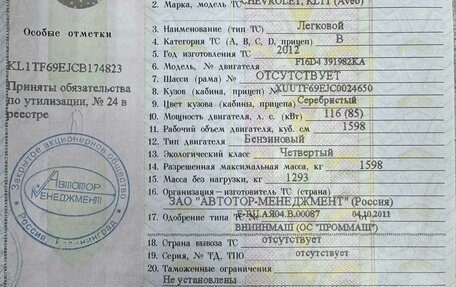 Особые отметки
KL1TF69EJCB174823
Приняты обязательства
по утилизации, № 24 в
реестре
Закрытое акционерное общество
Автотор
Менеджмент
Россия
2. Марка, модель ТС CHEVROLET, KL1T (Aveo)
3. Наименование (тип ТС) Легковой
4. Категория ТС (А, В, С, D, прицеп) B
5. Год изготовления ТС 2012
6. Модель, № двигателя F16D4 391982KA
7. Шасси (рама) № ОТСУТСТВУЕТ
8. Кузов (кабина, прицеп) № XUUTF69EJC0024650
9. Цвет кузова (кабины, прицепа) Серебристый
10. Мощность двигателя, л. с. (кВт) 116 (85)
11. Рабочий объем двигателя, куб. см 1598
12. Тип двигателя Бензиновый
13. Экологический класс Четвертый
14. Разрешенная максимальная масса, кг 1598
15. Масса без нагрузки, кг 1293
16. Организация—изготовитель ТС (страна)
ЗАО "АВТОТОР-МЕНЕДЖМЕНТ" (Россия)
17. Одобрение типа ТС № E-RU.АЯ04.В.00087 от 04.10.2011
ВНИИНМАШ (ОС "ПРОММАШ")
18. Страна вывоза ТС отсутствует
19. Серия, № ТД, ТПО отсутствует
20. Таможенные ограничения
Не установлены